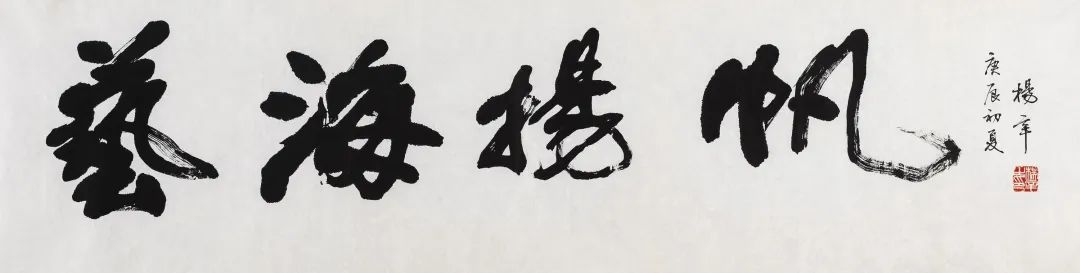 藝海揚帆
庚辰初夏
楊辛